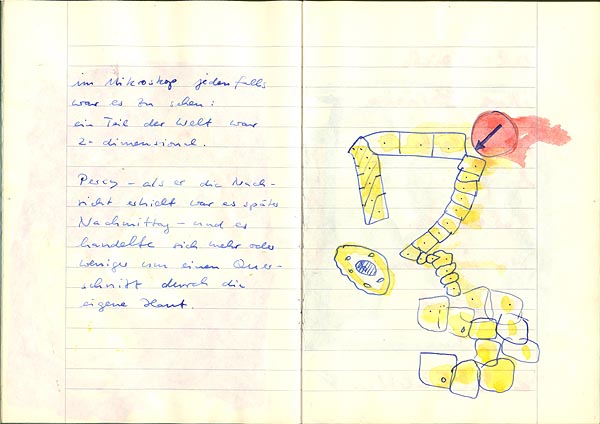 im Mikroskop jedenfalls
war es zu sehen:
ein Teil der Welt war
2-dimensional.
Percy – als er die Nach-
richt erhielt war es später
Nachmittag – und es
handelte sich mehr oder
weniger um einen Quer-
schnitt durch die
eigene Haut.